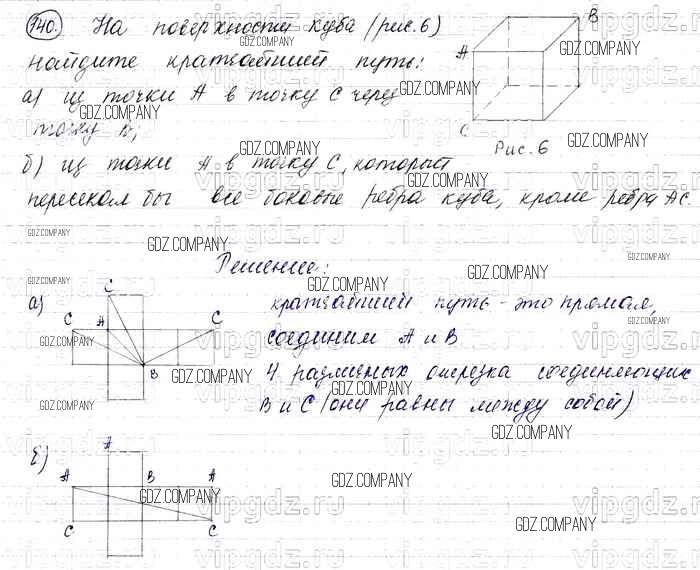 140. На поверхности куба (рис.6)
найдите кратчайший путь:
а) из точки А в точку С через
точку В;
б) из точки А в точку С, который
пересекал бы все боковые ребра куба, кроме ребра АС.
A
B
C
Рис. 6
Решение:
а)
кратчайший путь - это прямая,
соединим А и В
4 различных отрезка соединяющих
В и С (они равны между собой)
C
C
A
C
B
б)
A
A
B
A
C
C
GDZ.COMPANY
vipgdz.ru